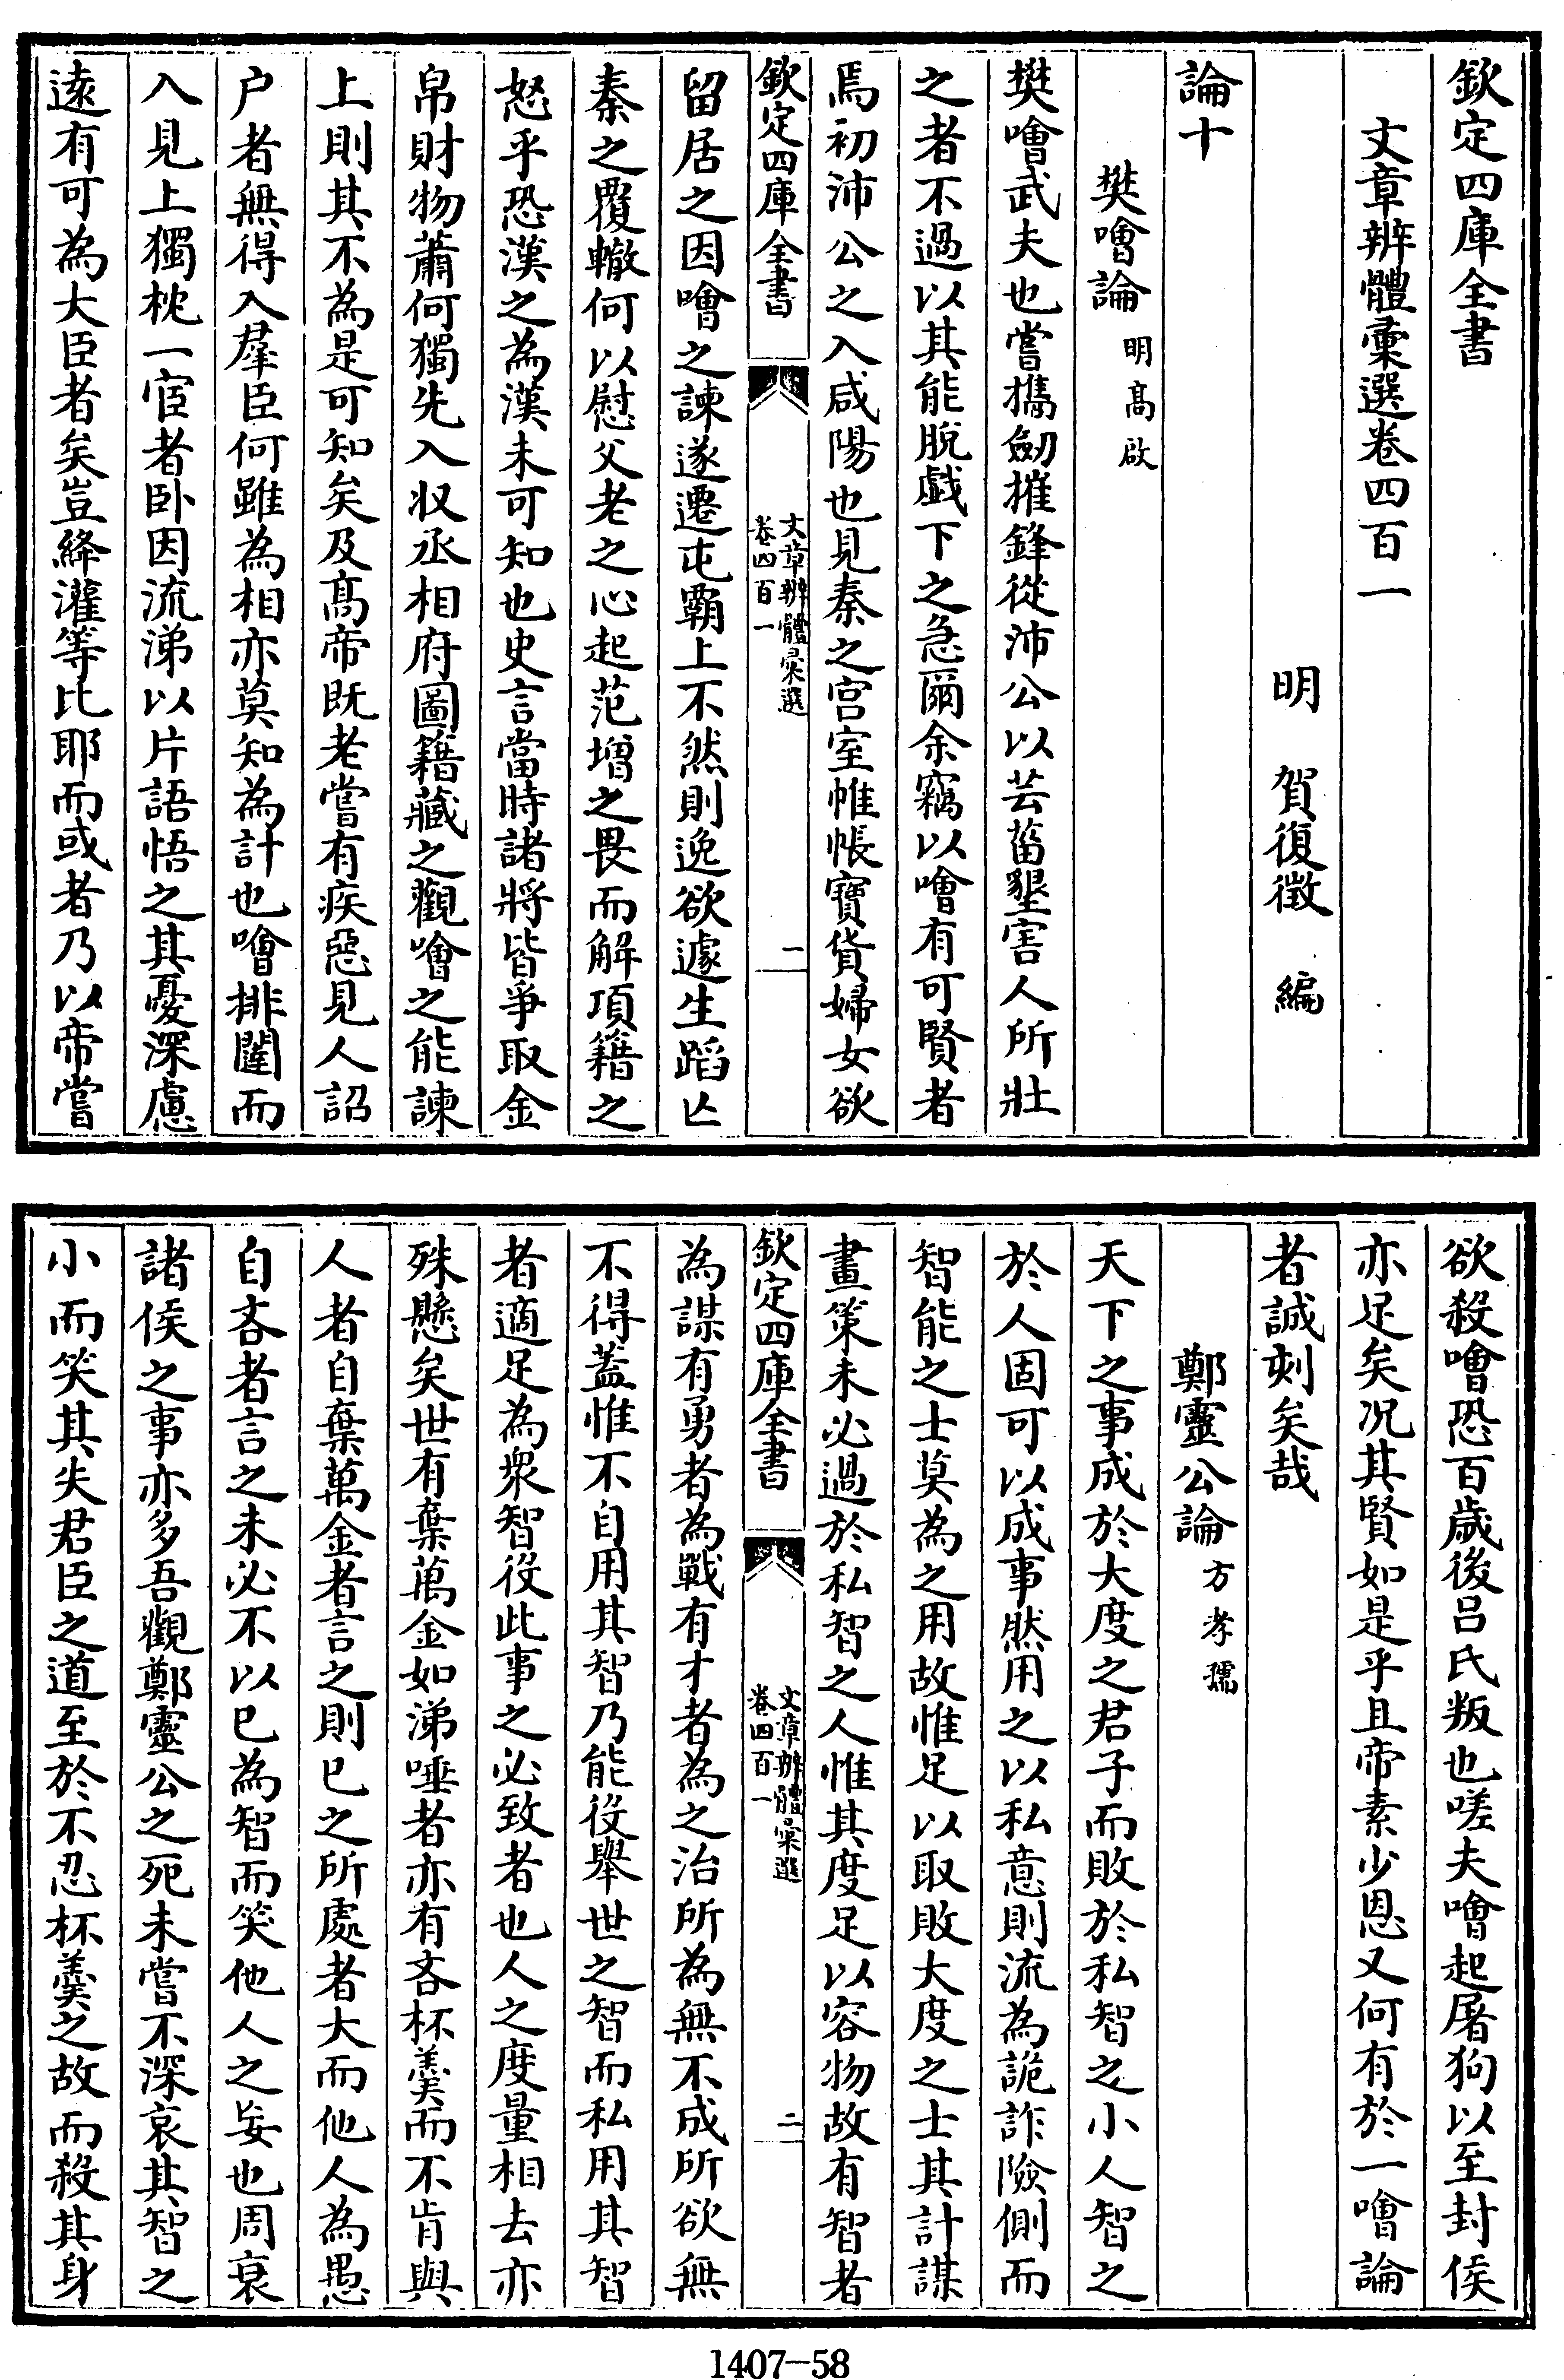 欽定四庫全書
文章辨體彙選卷四百一
明 賀復徵 編
論十
樊噲論 明高啟
樊噲武夫也嘗攜劒摧鋒從沛公以芸菑墾害人所壯
之者不過以其能脫戲下之急爾余竊以噲有可賢者
焉初沛公之入咸陽也見秦之宮室帷帳寶貨婦女欲
欽定四庫全書
文章辨體彙選
卷四百一
一
留居之因噲之諫遂遷屯覇上不然則逸欲遽生蹈亾
秦之覆轍何以慰父老之心起范增之畏而解項籍之
怒乎恐漢之為漢未可知也史言當時諸將皆爭取金
帛財物蕭何獨先入收丞相府圖籍藏之觀噲之能諫
上則其不為是可知矣及髙帝既老嘗有疾惡見人詔
户者無得入羣臣何雖為相亦莫知為計也噲排闥而
入見上獨枕一宦者卧因流涕以片語悟之其憂深慮
逺有可為大臣者矣豈絳灌等比耶而或者乃以帝嘗
欲殺噲恐百歲後吕氏叛也嗟夫噲起屠狗以至封侯
亦足矣况其賢如是乎且帝素少恩又何有於一噲論
者誠刻矣哉
鄭靈公論 方孝孺
天下之事成於大度之君子而敗於私智之小人智之
於人固可以成事然用之以私意則流為詭詐險側而
智能之士莫為之用故惟足以取敗大度之士其計謀
畫策未必過於私智之人惟其度足以容物故有智者
欽定四庫全書
文章辨體彙選
卷四百一
二
為謀有勇者為戰有才者為之治所為無不成所欲無
不得蓋惟不自用其智乃能役舉世之智而私用其智
者適足為衆智役此事之必致者也人之度量相去亦
殊懸矣世有棄萬金如涕唾者亦有吝杯羮而不肯與
人者自棄萬金者言之則已之所處者大而他人為愚
自吝者言之未必不以已為智而笑他人之妄也周衰
諸侯之事亦多吾觀鄭靈公之死未嘗不深哀其智之
小而笑其失君臣之道至於不忍杯羮之故而殺其身
1407-58